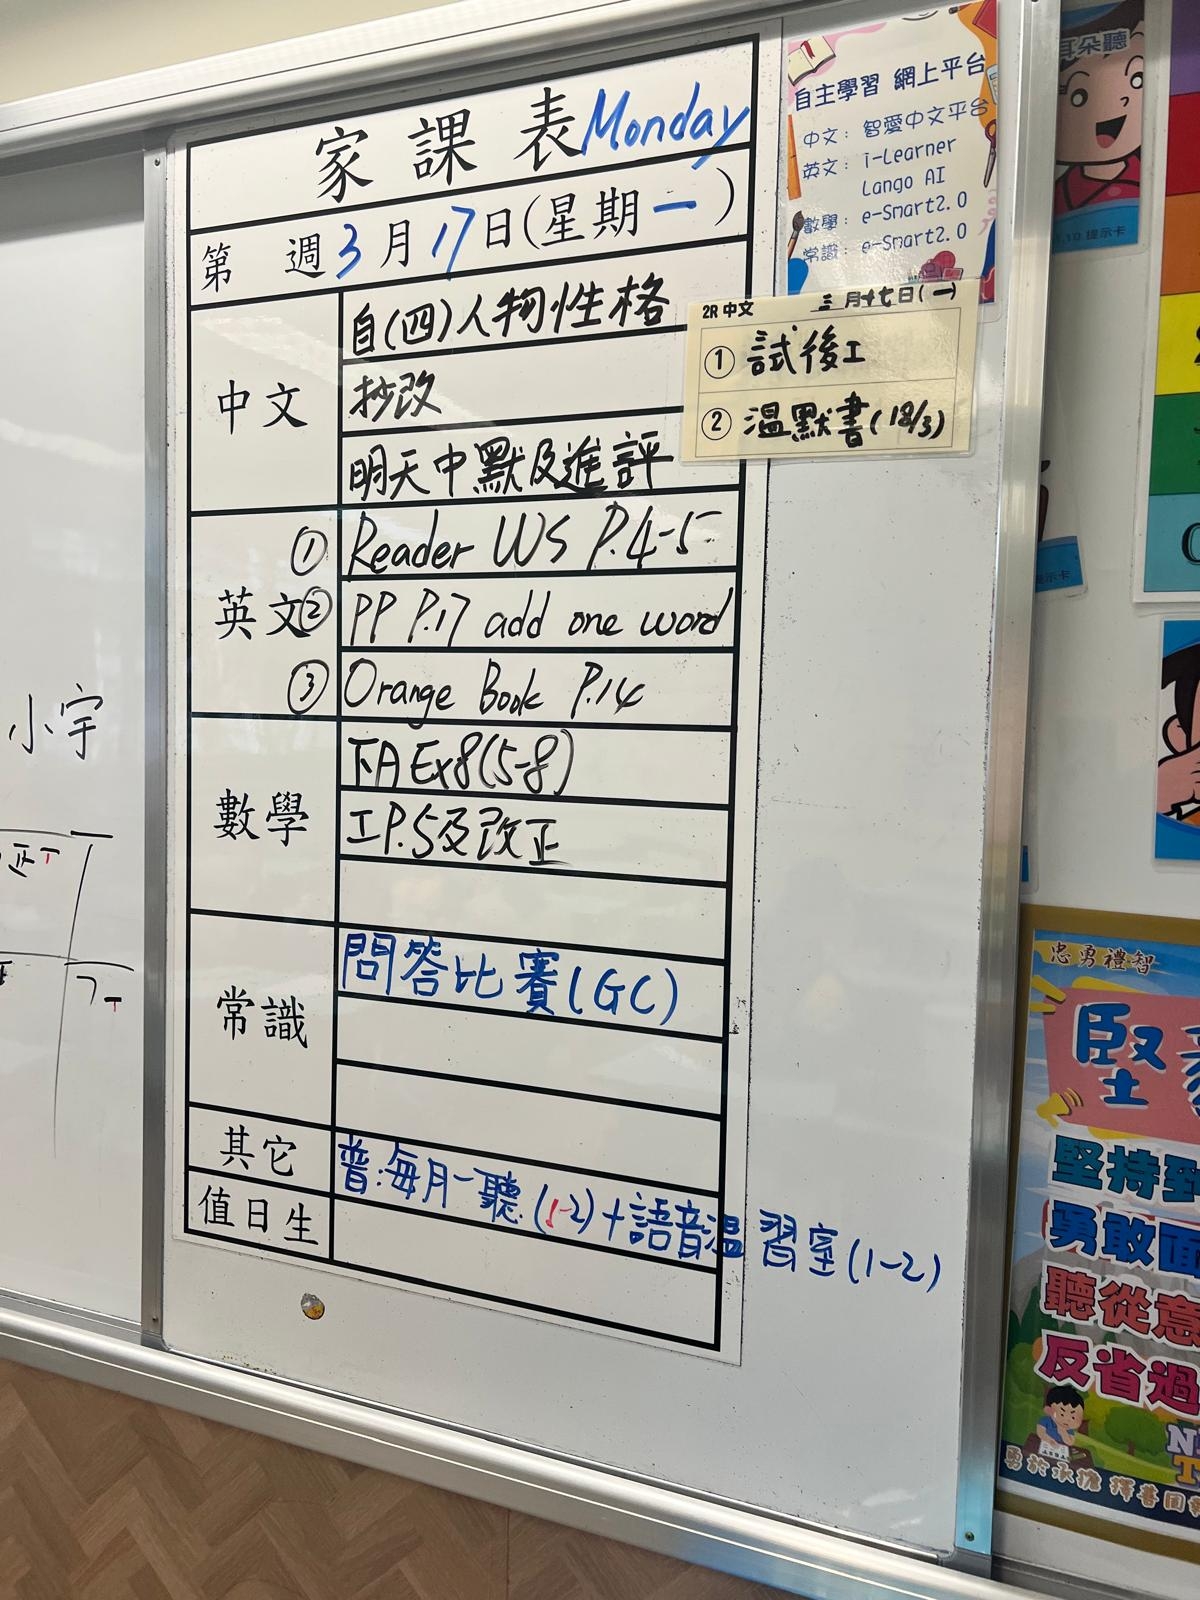 家課表 Monday
第 週 3月17日(星期一)
中文
自(四)人物性格
抄改
明天中默及進評
英文
① Reader WS P.4-5
② PP P.17 add one word
③ Orange Book P.14
數學
下A Ex8(5-8)
工P.5及改正
常識
問答比賽(GC)
其它
普:每月一聽(1-2)+語音溫習室(1-2)
值日生
自主學習 網上平台
中文: 智愛中文平台
英文: i-Learner
Lango AI
數學: e-Smart2.0
常識: e-Smart2.0
2R 中文 三月十七日(一)
① 試後工
② 溫默書(18/3)
小宇
耳朵聽
提示卡
提示卡
忠勇禮智
堅
堅持到
勇敢面
聽從意
反省過
勇於承擔 擇善固